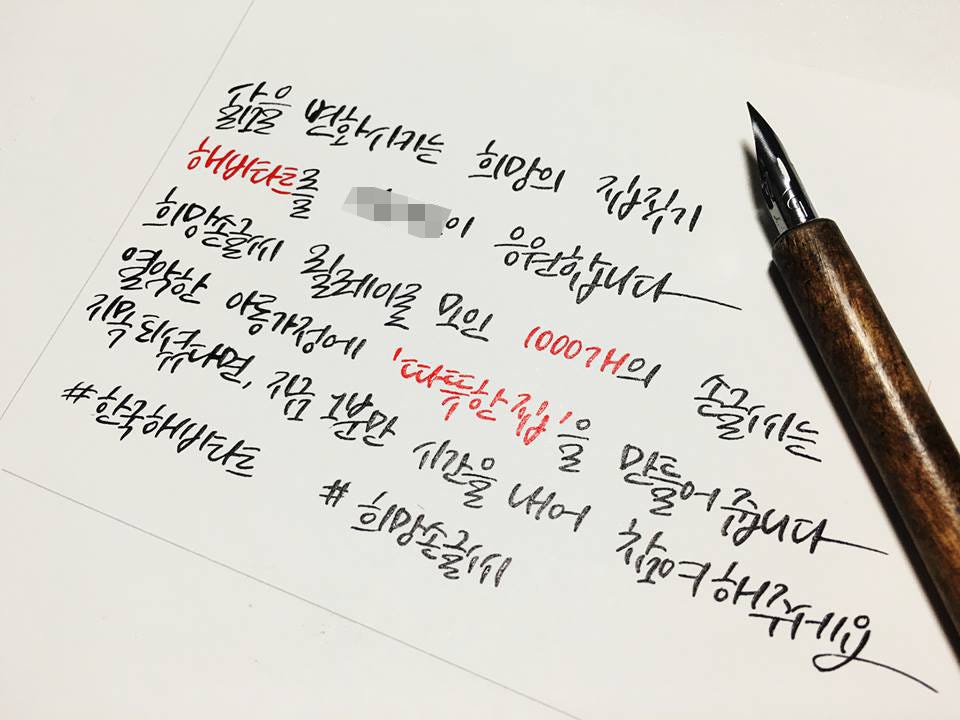 삶을 변화시키는 희망의 집짓기
해비타트를 이 응원합니다
희망손글씨 릴레이로 모인 1000개의 손글씨는
열악한 아동가정에 '따뜻한 집'을 만들어 줍니다
지목되셨다면, 지금 1분만 시간을 내어 참여해주세요
#한국해비타트 #희망손글씨